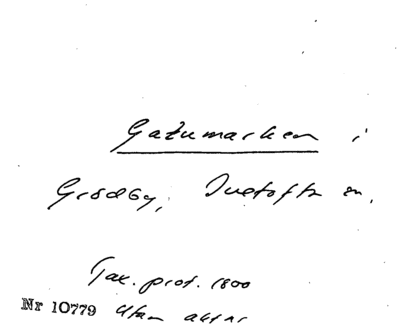 Gatumarken i
Grödby, Tveტofta sn.
Tax. prot. 1800
Nr 10779 Utan akt nr